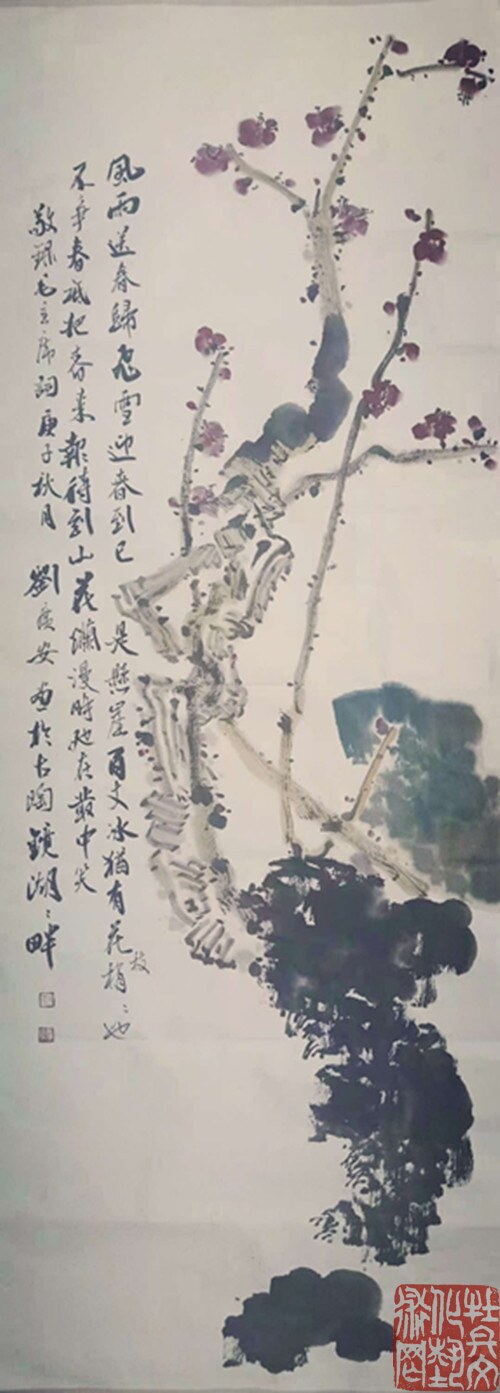 風雨送春歸飛雪迎春到已是懸崖百丈冰猶有花枝梢〻也
不爭春祇把春来報待到山花爛漫時她在叢中笑
敬録毛主席詞庚子秋月 劉廣安画於古陶鏡湖〻畔
杜兵文
化藝